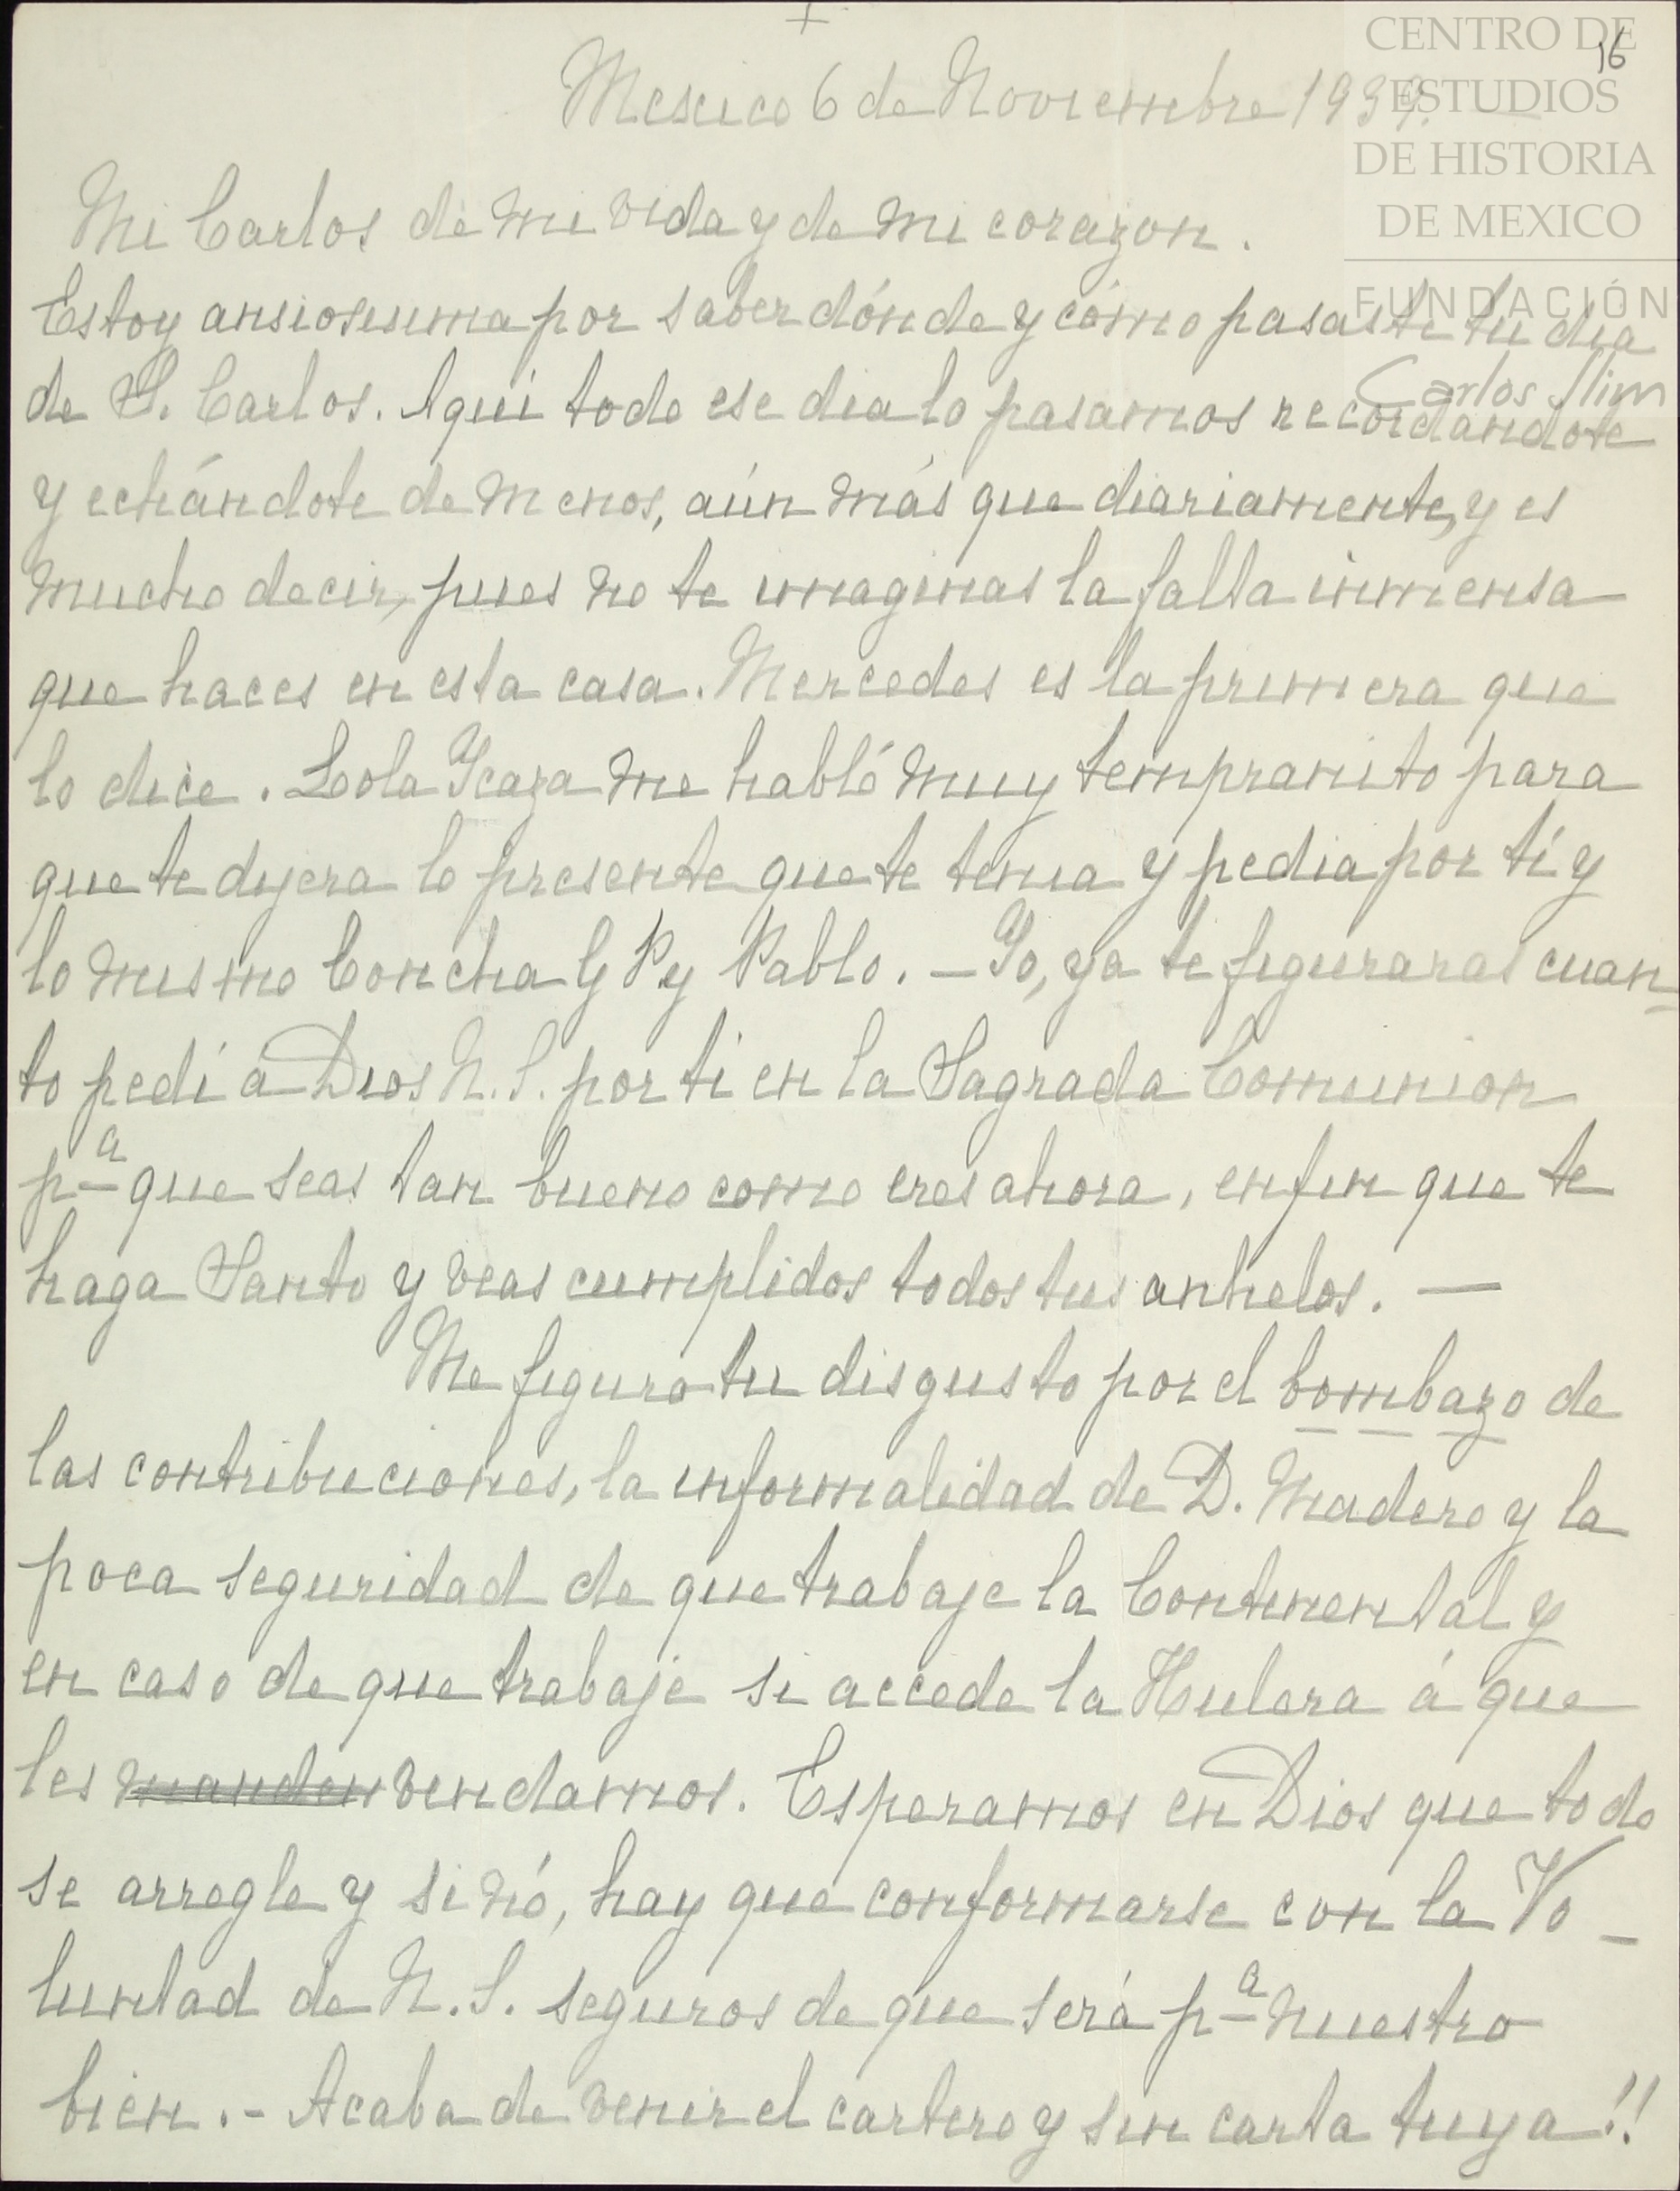 +
16
CENTRO DE
ESTUDIOS
DE HISTORIA
DE MEXICO
FUNDACIÓN
Carlos Slim
Mexico 6 de Noviembre 1939.
Mi Carlos de mi vida y de mi corazon.
Estoy ansiosisima por saber dónde y cómo pasaste tu dia
de S. Carlos. Aqui todo ese dia lo pasamos recordandote
y echándote de menos, aún más que diariamente, y es
mucho decir, pues no te imaginas la falta inmensa
que haces en esta casa. Mercedes es la primera que
lo dice. Lola Ycaza me habló muy tempranito para
que te dijera lo presente que te tenia y pedia por tí y
lo mismo Concha G P y Pablo. — Yo, ya te figuraras cuan-
to pedí á Dios N. S. por ti en la Sagrada Comunion
pª que seas tan bueno como eres ahora, enfin que te
haga Santo y veas cumplidos todos tus anhelos. —
Me figuro tu disgusto por el bombazo de
las contribuciones, la informalidad de D. Madero y la
poca seguridad de que trabaje la Continental y
en caso de que trabaje si accede la Hulera á que
les manden vendamos. Esperamos en Dios que todo
se arregle y si nó, hay que conformarse con la Vo-
luntad de N. S. seguros de que será pª nuestro
bien. - Acaba de venir el cartero y sin carta tuya!!